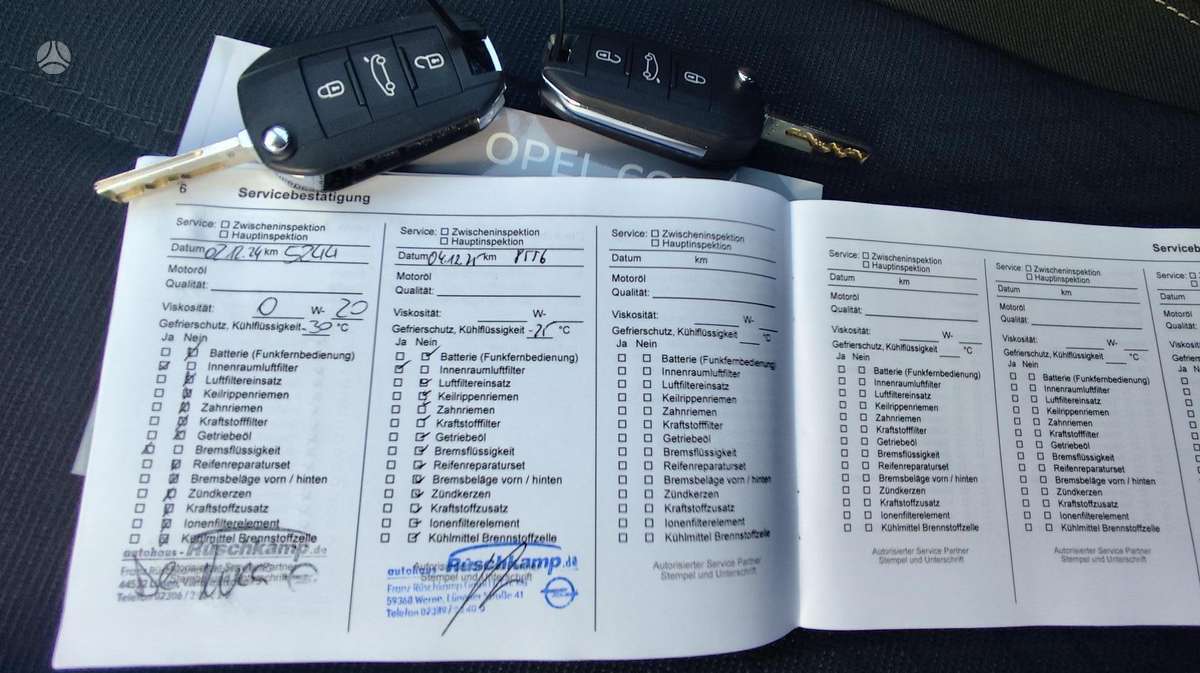 OPEL CO
6 Servicebestätigung
Service: Zwischeninspektion
Hauptinspektion
Datum 02.12.24 km 5244
Motoröl
Qualität:
Viskosität: 0 W- 20
Gefrierschutz, Kühlflüssigkeit -30 °C
Ja Nein
Batterie (Funkfernbedienung)
Innenraumluftfilter
Luftfiltereinsatz
Keilrippenriemen
Zahnriemen
Kraftstofffilter
Getriebeöl
Bremsflüssigkeit
Reifenreparaturset
Bremsbeläge vorn / hinten
Zündkerzen
Kraftstoffzusatz
Ionenfilterelement
Kühlmittel Brennstoffzelle
autohaus-Rüschkamp.de
Telefon 02306 / 2
Service: Zwischeninspektion
Hauptinspektion
Datum 04.12.25 km 8556
Motoröl
Qualität:
Viskosität: W-
Gefrierschutz, Kühlflüssigkeit -25 °C
Ja Nein
Batterie (Funkfernbedienung)
Innenraumluftfilter
Luftfiltereinsatz
Keilrippenriemen
Zahnriemen
Kraftstofffilter
Getriebeöl
Bremsflüssigkeit
Reifenreparaturset
Bremsbeläge vorn / hinten
Zündkerzen
Kraftstoffzusatz
Ionenfilterelement
Kühlmittel Brennstoffzelle
autohaus Rüschkamp.de
Stempel und Unterschrift
Franz Rüschkamp
59368 Werne, Straße 41
Telefon 02389 /
Service: Zwischeninspektion
Hauptinspektion
Datum km
Motoröl
Qualität:
Viskosität: W-
Gefrierschutz, Kühlflüssigkeit °C
Ja Nein
Batterie (Funkfernbedienung)
Innenraumluftfilter
Luftfiltereinsatz
Keilrippenriemen
Zahnriemen
Kraftstofffilter
Getriebeöl
Bremsflüssigkeit
Reifenreparaturset
Bremsbeläge vorn / hinten
Zündkerzen
Kraftstoffzusatz
Ionenfilterelement
Kühlmittel Brennstoffzelle
Autorisierter Service Partner
Stempel und Unterschrift
Serviceb
Service: Zwischeninspektion
Hauptinspektion
Datum km
Motoröl
Qualität:
Viskosität: W-
Gefrierschutz, Kühlflüssigkeit °C
Ja Nein
Batterie (Funkfernbedienung)
Innenraumluftfilter
Luftfiltereinsatz
Keilrippenriemen
Zahnriemen
Kraftstofffilter
Getriebeöl
Bremsflüssigkeit
Reifenreparaturset
Bremsbeläge vorn / hinten
Zündkerzen
Kraftstoffzusatz
Ionenfilterelement
Kühlmittel Brennstoffzelle
Autorisierter Service Partner
Stempel und Unterschrift
Service: Zwischeninspektion
Hauptinspektion
Datum km
Motoröl
Qualität:
Viskosität: W-
Gefrierschutz, Kühlflüssigkeit °C
Ja Nein
Batterie (Funkfernbedienung)
Innenraumluftfilter
Luftfiltereinsatz
Keilrippenriemen
Zahnriemen
Kraftstofffilter
Getriebeöl
Bremsflüssigkeit
Reifenreparaturset
Bremsbeläge vorn / hinten
Zündkerzen
Kraftstoffzusatz
Ionenfilterelement
Kühlmittel Brennstoffzelle
Autorisierter Service Partner
Stempel und Unterschrift
Service:
Datum
Motoröl
Qualität:
Viskosit
Gefriers
Ja N